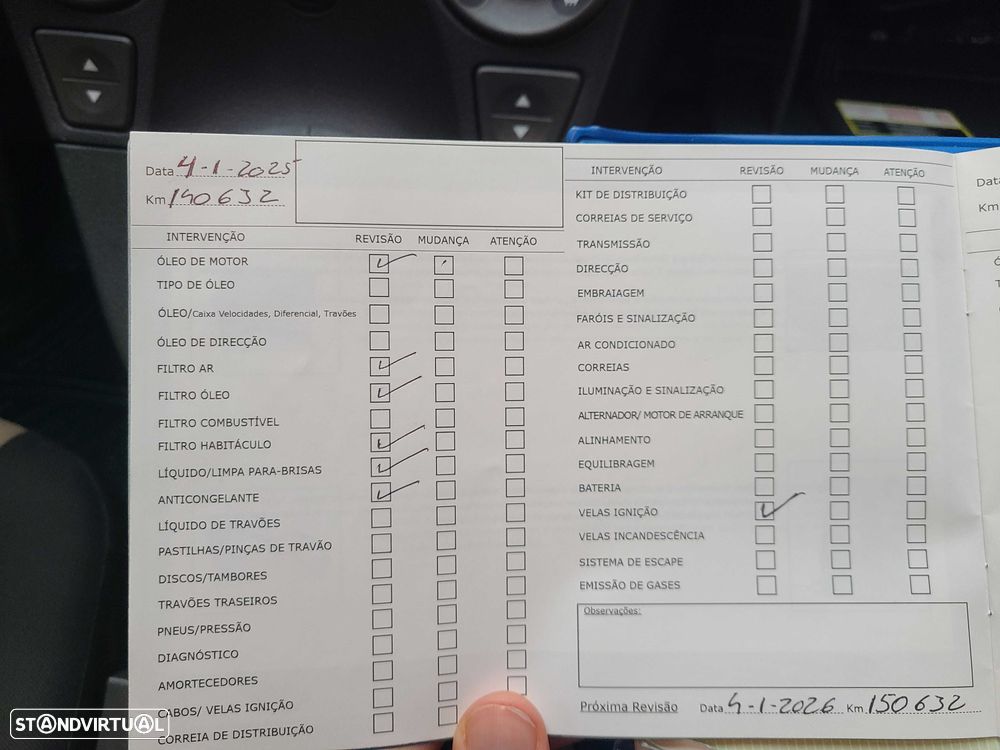 Data 4-1-2025
Km 140632
INTERVENÇÃO REVISÃO MUDANÇA ATENÇÃO
ÓLEO DE MOTOR
TIPO DE ÓLEO
ÓLEO/Caixa Velocidades, Diferencial, Travões
ÓLEO DE DIRECÇÃO
FILTRO AR
FILTRO ÓLEO
FILTRO COMBUSTÍVEL
FILTRO HABITÁCULO
LÍQUIDO/LIMPA PARA-BRISAS
ANTICONGELANTE
LÍQUIDO DE TRAVÕES
PASTILHAS/PINÇAS DE TRAVÃO
DISCOS/TAMBORES
TRAVÕES TRASEIROS
PNEUS/PRESSÃO
DIAGNÓSTICO
AMORTECEDORES
CABOS/ VELAS IGNIÇÃO
CORREIA DE DISTRIBUIÇÃO
INTERVENÇÃO REVISÃO MUDANÇA ATENÇÃO
KIT DE DISTRIBUIÇÃO
CORREIAS DE SERVIÇO
TRANSMISSÃO
DIRECÇÃO
EMBRAIAGEM
FARÓIS E SINALIZAÇÃO
AR CONDICIONADO
CORREIAS
ILUMINAÇÃO E SINALIZAÇÃO
ALTERNADOR/ MOTOR DE ARRANQUE
ALINHAMENTO
EQUILIBRAGEM
BATERIA
VELAS IGNIÇÃO
VELAS INCANDESCÊNCIA
SISTEMA DE ESCAPE
EMISSÃO DE GASES
Observações:
Próxima Revisão Data 4-1-2026 Km 150632
Data
Km
STANDVIRTUAL